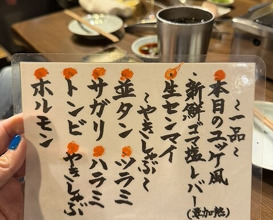 ～一品～
本日のユッケ風
・新鮮ゴマ塩レバー
(要加熱)
生センマイ
～やきしゃぶ～
並タン ツラミ
サガリ ハラミ
トンビ やきしゃぶ
ホルモン